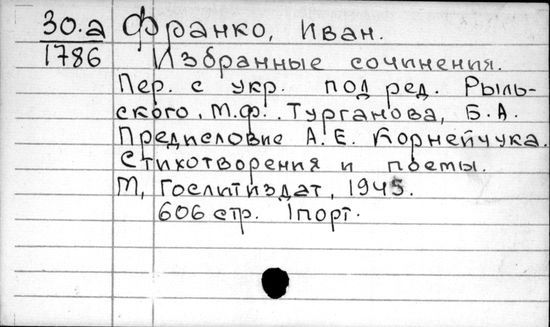 30.а Франко, Иван.
1786 Избранные сочинения.
Пер. с укр. под ред. Рыль-
ского, М.Ф., Турганова, Б.А.
Предисловие А.Е. Корнейчука.
Стихотворения и поэмы.
М, Гослитиздат, 1945.
606 стр. 1 порт.